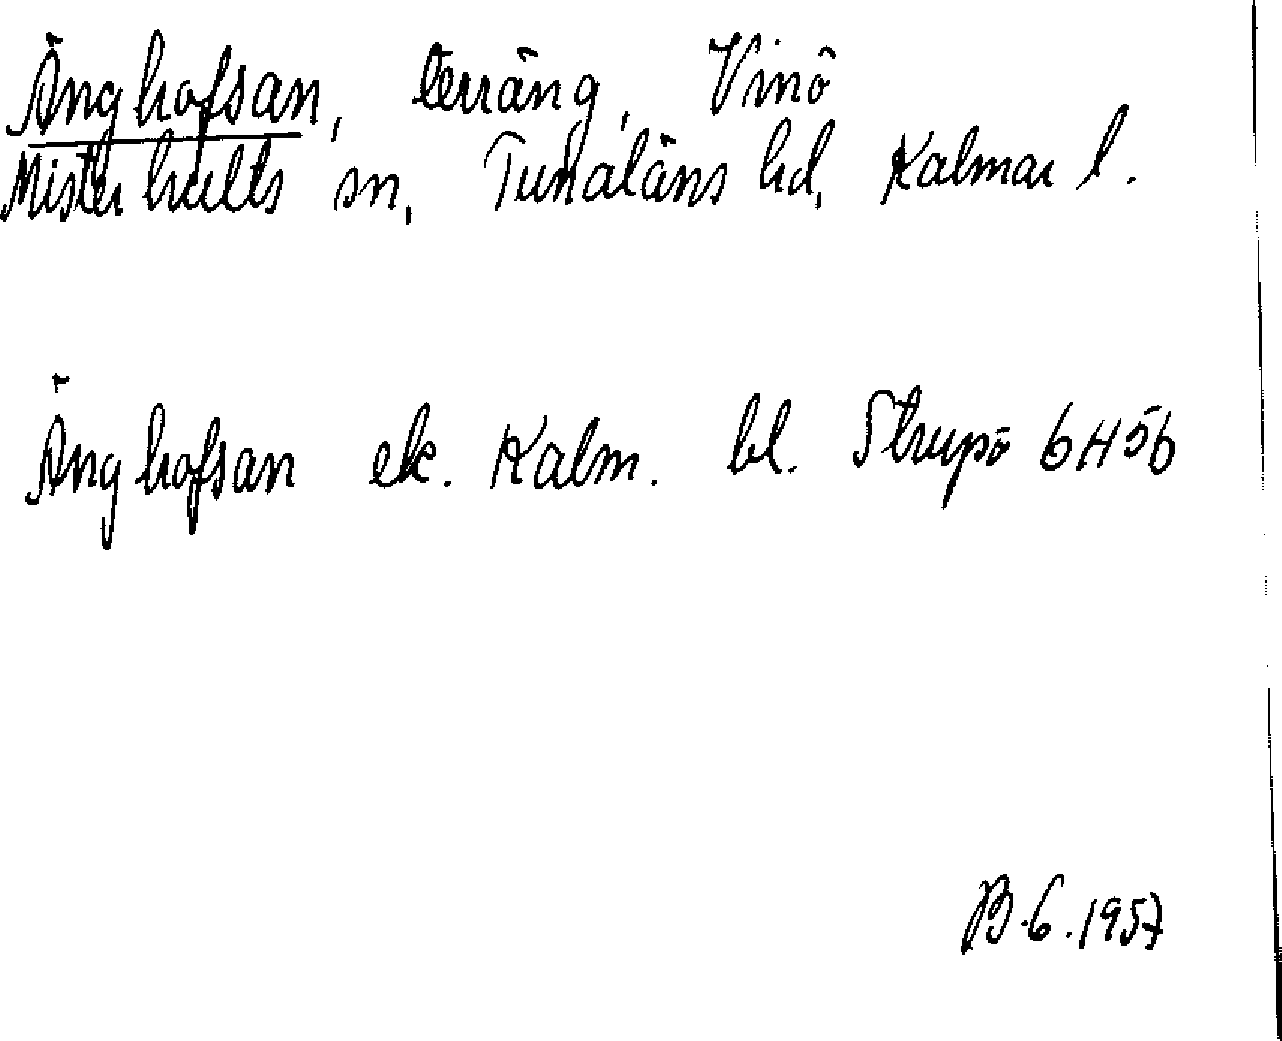 Änghofsan, terräng, Vinö
Misterhults sn, Tunaläns hd, Kalmar l.
Änghofsan ek. Kalm. bl. Strupö 6H5b
B.G. 1957